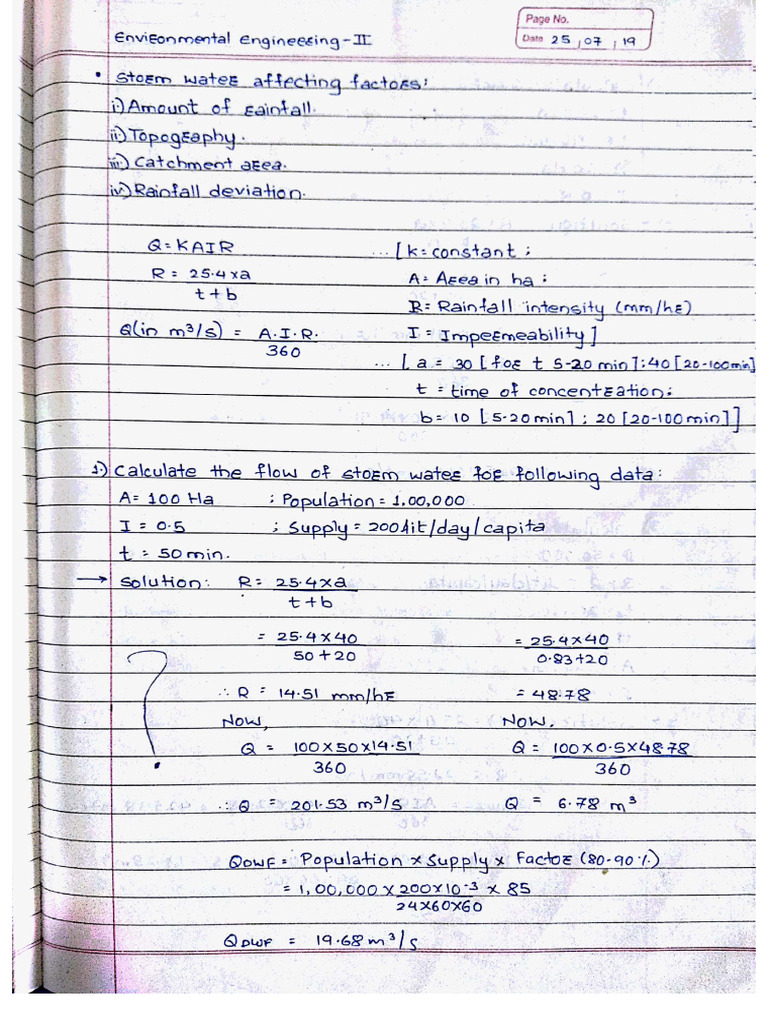 Page No.
Date 25 / 07 / 19
Environmental Engineering-II
• Storm water affecting factors:
i) Amount of rainfall.
ii) Topography.
iii) Catchment area.
iv) Rainfall deviation.
Q = KAIR ...[k = constant;
R = 25.4×a / t+b A = Area in ha;
R = Rainfall intensity (mm/hr)
Q(in m³/s) = A.I.R. / 360 I = Impermeability]
...[a = 30 [for t 5-20 min]; 40 [20-100min]
t = time of concentration;
b = 10 [5-20min]; 20 [20-100 min]]
1.) Calculate the flow of storm water for following data:
A = 100 Ha ; Population = 1,00,000
I = 0.5 ; Supply = 200 lit/day/capita
t = 50 min.
→ Solution: R = 25.4×a / t+b
= 25.4×40 / 50+20 = 25.4×40 / 0.83+20
∴ R = 14.51 mm/hr = 48.78
Now, Now,
Q = 100×50×14.51 / 360 Q = 100×0.5×48.78 / 360
?
∴ Q = 201.53 m³/s Q = 6.78 m³
QDWF = Population × Supply × Factor (80-90%)
= 1,00,000 × 200×10⁻³ × 85 / 24×60×60
QDWF = 19.68 m³/s